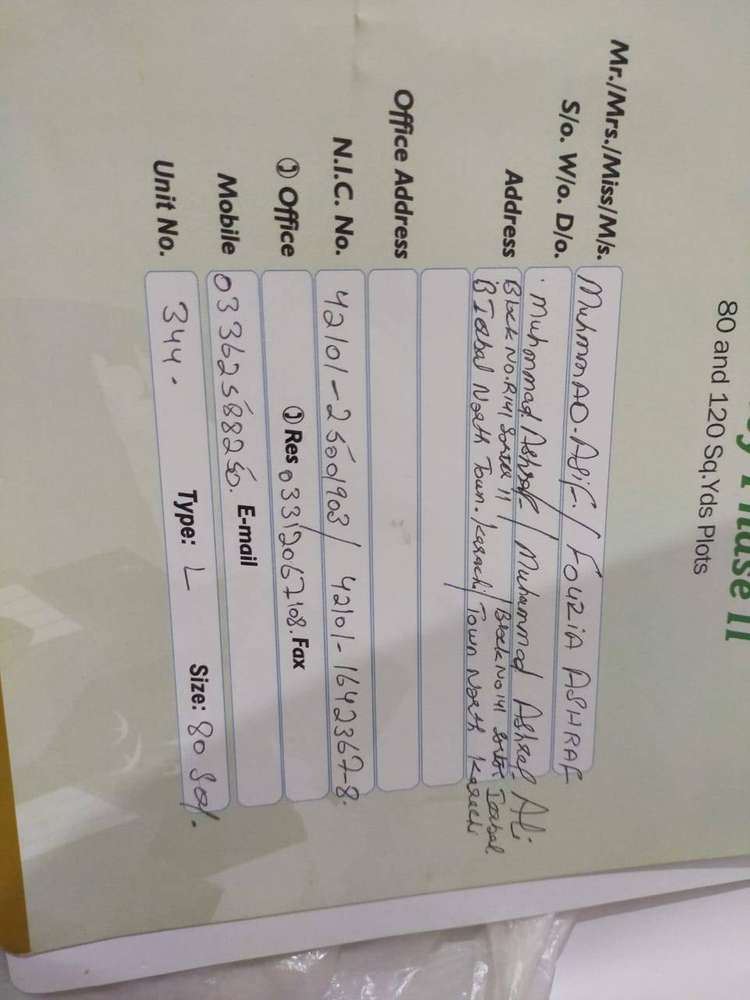 Phase II
80 and 120 Sq.Yds Plots
Mr./Mrs./Miss/M/s. Muhmmad. Asif. / Fouzia Ashraf
S/o. W/o. D/o. Muhmmad. Ashraf / Muhammad Ashraf Ali
Address Block No. R141 11 / Block No 141 Iqbal
Iqbal North Town. Karachi / Town North Karachi
Office Address
N.I.C. No. 42101-2500903 / 42101-1642367-8.
Office Res 03312067108. Fax
Mobile 03362588250. E-mail
Unit No. 344. Type: L Size: 80 Sqy.